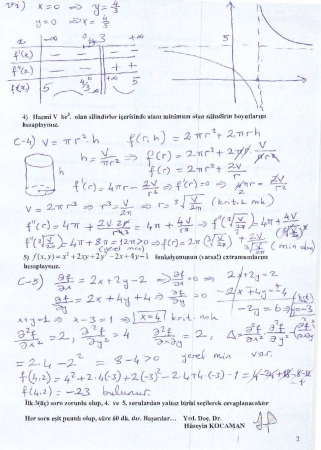 vi) x=0 ⇒ y=4/3
y=0 ⇒ x=4/3
x -∞ 0 4/3 3 +∞
f'(x) — — — —
f''(x) — — — + +
f(x) 5 4/3 0 -∞ +∞ 5
5
3
4) Hacmi V br³ olan silindirler içerisinde alanı minimum olan silindirin boyutlarını
hesaplayınız.
C-4) V = πr²h f(r,h) = 2πr² + 2πrh
h h = V/πr² ⇒ f(r) = 2πr² + 2πr V/πr²
f(r) = 2πr² + 2V/r
r f'(r) = 4πr - 2V/r² ⇒ f'(r)=0 ⇒ 4πr = 2V/r²
V = 2πr³ ⇒ r³ = V/2π ⇒ r = ∛V/2π (kritik nok)
f''(r) = 4π + 4V/r³
f''(∛V/2π) = 4π + 8π = 12π > 0 (yerel min)
5) f(x,y) = x² + 2xy + 2y² - 2x + 4y - 1 fonksiyonunun (varsa!) extramumlarını
hesaplayınız.
C-5) ∂f/∂x = 2x + 2y - 2 ⇒ ∂f/∂x = 0 ⇒ 2x + 2y = 2
∂f/∂y = 2x + 4y + 4 ⇒ ∂f/∂y = 0 ⇒ -2x + 4y = -4
-2y = 6 ⇒ y = -3
x+y=1 ⇒ x-3=1 ⇒ x=4 krit. nok
∂²f/∂x² = 2, ∂²f/∂y² = 4
= 2.4 - 2² = 8-4 > 0 yerel min var.
f(4,2) = 4² + 2.4(-3) + 2(-3)² - 2.4 + 4.(-3) - 1
f(4,2) = -23 bulunur.
İlk 3(üç) soru zorunlu olup, 4. ve 5. sorulardan yalnız birini seçilerek cevaplanacaktır
Her soru eşit puanlı olup, süre 60 dk. dır. Başarılar... Yrd. Doç. Dr.
Hüseyin KOCAMAN
2